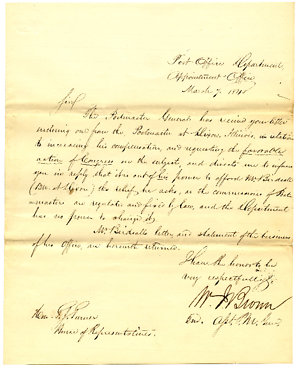 Post Office Department,
Appointment Office
March 7, 1848
Sir,
The Postmaster General has received your letter
enclosing one from the Postmaster at Illinois, in relation
to increasing his compensation, and requesting the favorable
action of Congress on the subject, and directs me to inform
you in reply that it is out of his power to afford Mr. Birdsall
the relief he asks, as the commissions of Post
masters are regulated and fixed by law, and the Department
has no power to change it.
Mr. Birdsall's letter, and statement of the business
of his office, are herewith returned.
I have the honor to be
very respectfully,
Wm. J. Brown
2nd. Asst. P. M. Genl.
Hon. T. J. Turner
House of Representatives.